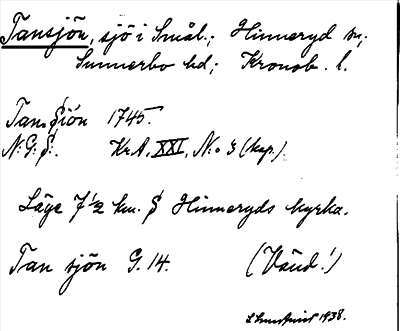 Tansjön, sjö i Smål.; Hinneryd sn;
Sunnerbo hd; Kronob. l.
Tan Siön 1745.
N: G: S:. Kr.A. XXI, N:o 3 (kap.).
Läge 7 1/2 km. S Hinneryds kyrka.
Tan sjön G. 14. (Vänd!)
1938.